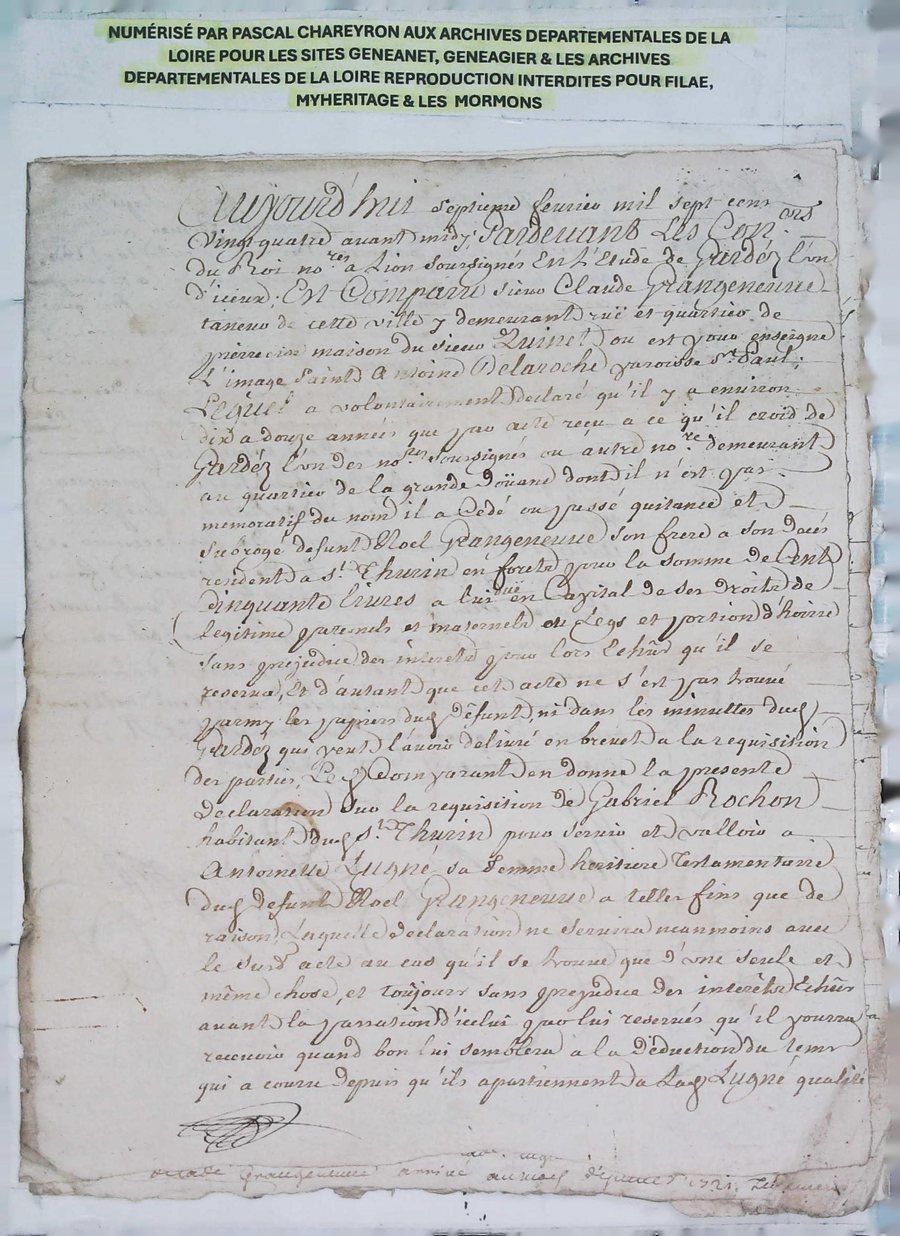 NUMÉRISÉ PAR PASCAL CHAREYRON AUX ARCHIVES DEPARTEMENTALES DE LA
LOIRE POUR LES SITES GENEANET, GENEAGIER & LES ARCHIVES
DEPARTEMENTALES DE LA LOIRE REPRODUCTION INTERDITES POUR FILAE,
MYHERITAGE & LES MORMONS
Aujourd'huy septieme fevrier mil sept cens
vingt quatre avant midy Pardevant Les Con.ers
du Roi no.res a Lion soussignés En L'Etude de Gardéz L'un
d'iceux; Est Comparu sieur Claude Grangeneuve
taneur de cette ville y demeurant ruë et quartier de
pierrecise maison du sieur Quinet ou est pour enseigne
L'image Saint Antoine Delaroche paroisse S.t Paul;
Lequel a volontairement declaré qu'il y a environ
dix a douze années que par acte reçu a ce qu'il croid de
Gardéz L'un des no.res soussignés ou autre no.re demeurant
au quartier de la grande Doüane dont il n'est pas
memoratif du nom il a Cédé ou passé quitance et
subrogé defunt Noel Grangeneuve son frere a son deces
resident a S.t Thurin en forets pour la somme de Cent
Cinquante Livres a lui düe en Capital de ses droits de
legitime paternels et maternels ou Legs et portion d'hoirie
sans prejudice des interets pour lors Echûs qu'il se
reserva, Et d'autant que cet acte ne s'est pas trouvé
parmy les papiers dud Défunt ni dans les minuttes dud
Gardéz qui peut l'avoir delivré en brevet a la requisition
des parties, Led Comparant en donne la presente
declaration sur la requisition de Gabriel Rochon
habitant dud S.t Thurin pour servir et valloir a
Antoinette Lugné sa femme heritiere Testamentaire
dud defunt Noel Grangeneuve a telles fins que de
raison, Laquelle declaration ne servira neanmoins avec
le susd acte au cas qu'il se trouve que d'une seule et
même chose, et toujours sans prejudice des interêts Echûs
avant la passation d'iceluy par lui reservés qu'il pourra
recevoir quand bon lui semblera a la Déduction du tems
qui a couru depuis qu'ils apartiennent a Lad Lugné qualité
grangeneuve arrivé au mois